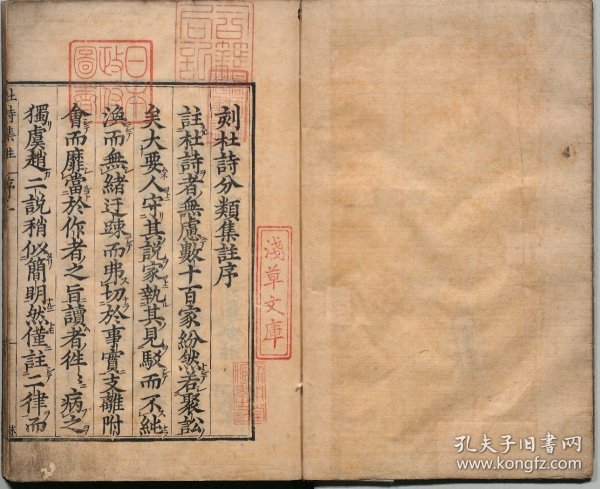 刻杜詩分類集註序
註杜詩者無慮數十百家紛然若聚訟
矣大要人守其説家執其見駁而不純
渙而無緒迂疎而弗切於事實支離附
會而靡當於作者之旨讀者徃〻病之
獨虞趙二説稍似簡明然僅註二律而
杜詩集註 序 一
日本
政府
圖書
淺草文庫
孔夫子旧书网
www.kongfz.com